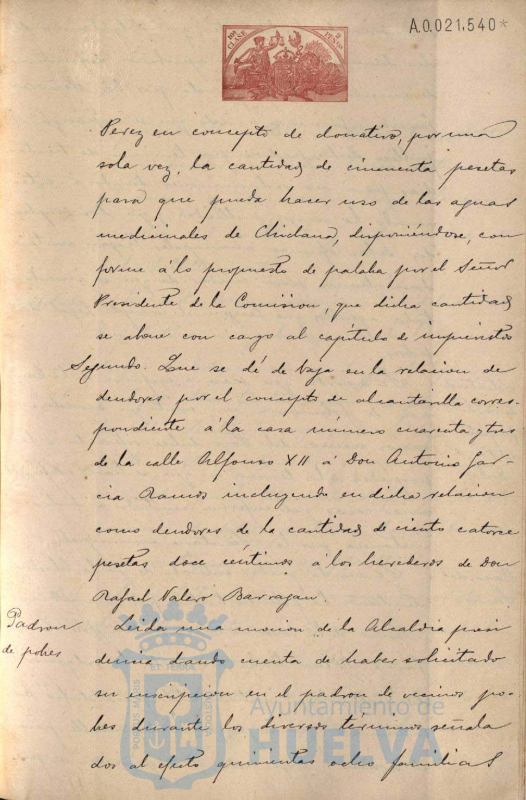 A.0.021,540*
10ª CLASE
2 PESAS
Perez en concepto de donativo, por una
sola vez, la cantidad de cincuenta pesetas
para que pueda hacer uso de las aguas
medicinales de Chiclana, disponiéndose, con
forme á lo propuesto de palabra por el Señor
Presidente de la Comision, que dicha cantidad
se abone con cargo al capítulo de imprevistos
Segundo. Que se dé de baja en la relacion de
deudores por el concepto de alcantarilla corres-
pondiente á la casa número cuarenta y tres
de la calle Alfonso XII á Don Antonio Gar-
cia Ramos incluyendo en dicha relacion
como deudores de la cantidad de ciento catorce
pesetas doce céntimos á los herederos de Don
Rafael Valero Barragan.
Padron
de pobres
Leida una mocion de la Alcaldia presi
dencia dando cuenta de haber solicitado
su inscripcion en el padron de vecinos po-
bres durante los diversos términos señala
dos al efecto quinientas ocho familias
Ayuntamiento de
HUELVA